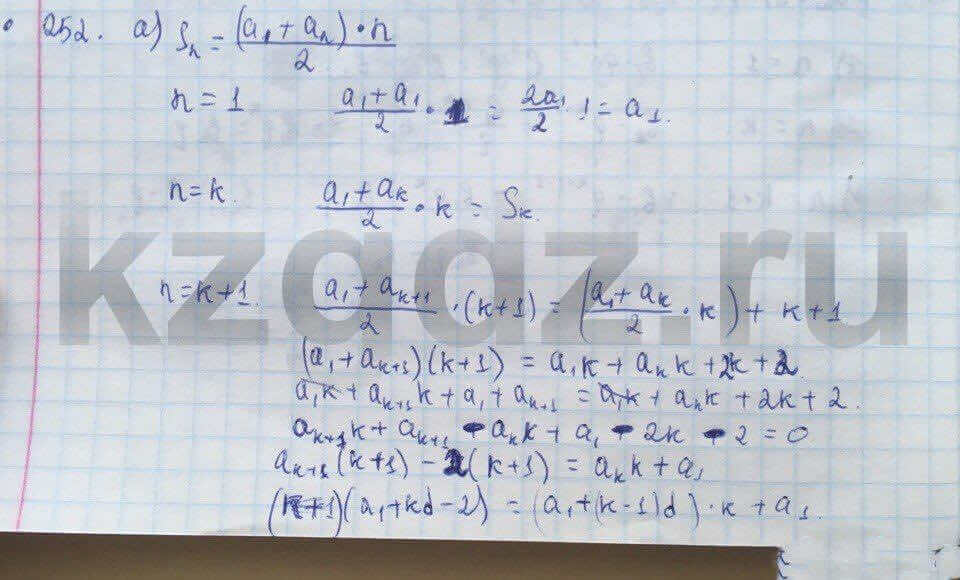 252. a) Sₙ = (a₁ + aₙ) · n / 2
n = 1 (a₁ + a₁) / 2 · 1 = 2a₁ / 2 · 1 = a₁.
n = k. (a₁ + aₖ) / 2 · k = Sₖ.
kzgdz.ru
n = k+1. (a₁ + aₖ₊₁) / 2 · (k+1) = ((a₁ + aₖ) / 2 · k) + k+1
(a₁ + aₖ₊₁)(k+1) = a₁k + aₖk + 2k + 2
a₁k + aₖ₊₁k + a₁ + aₖ₊₁ = a₁k + aₖk + 2k + 2.
aₖ₊₁k + aₖ₊₁ - aₖk + a₁ - 2k - 2 = 0
aₖ₊₁(k+1) - 2(k+1) = aₖk + a₁
(k+1)(a₁ + kd - 2) = (a₁ + (k-1)d) · k + a₁.